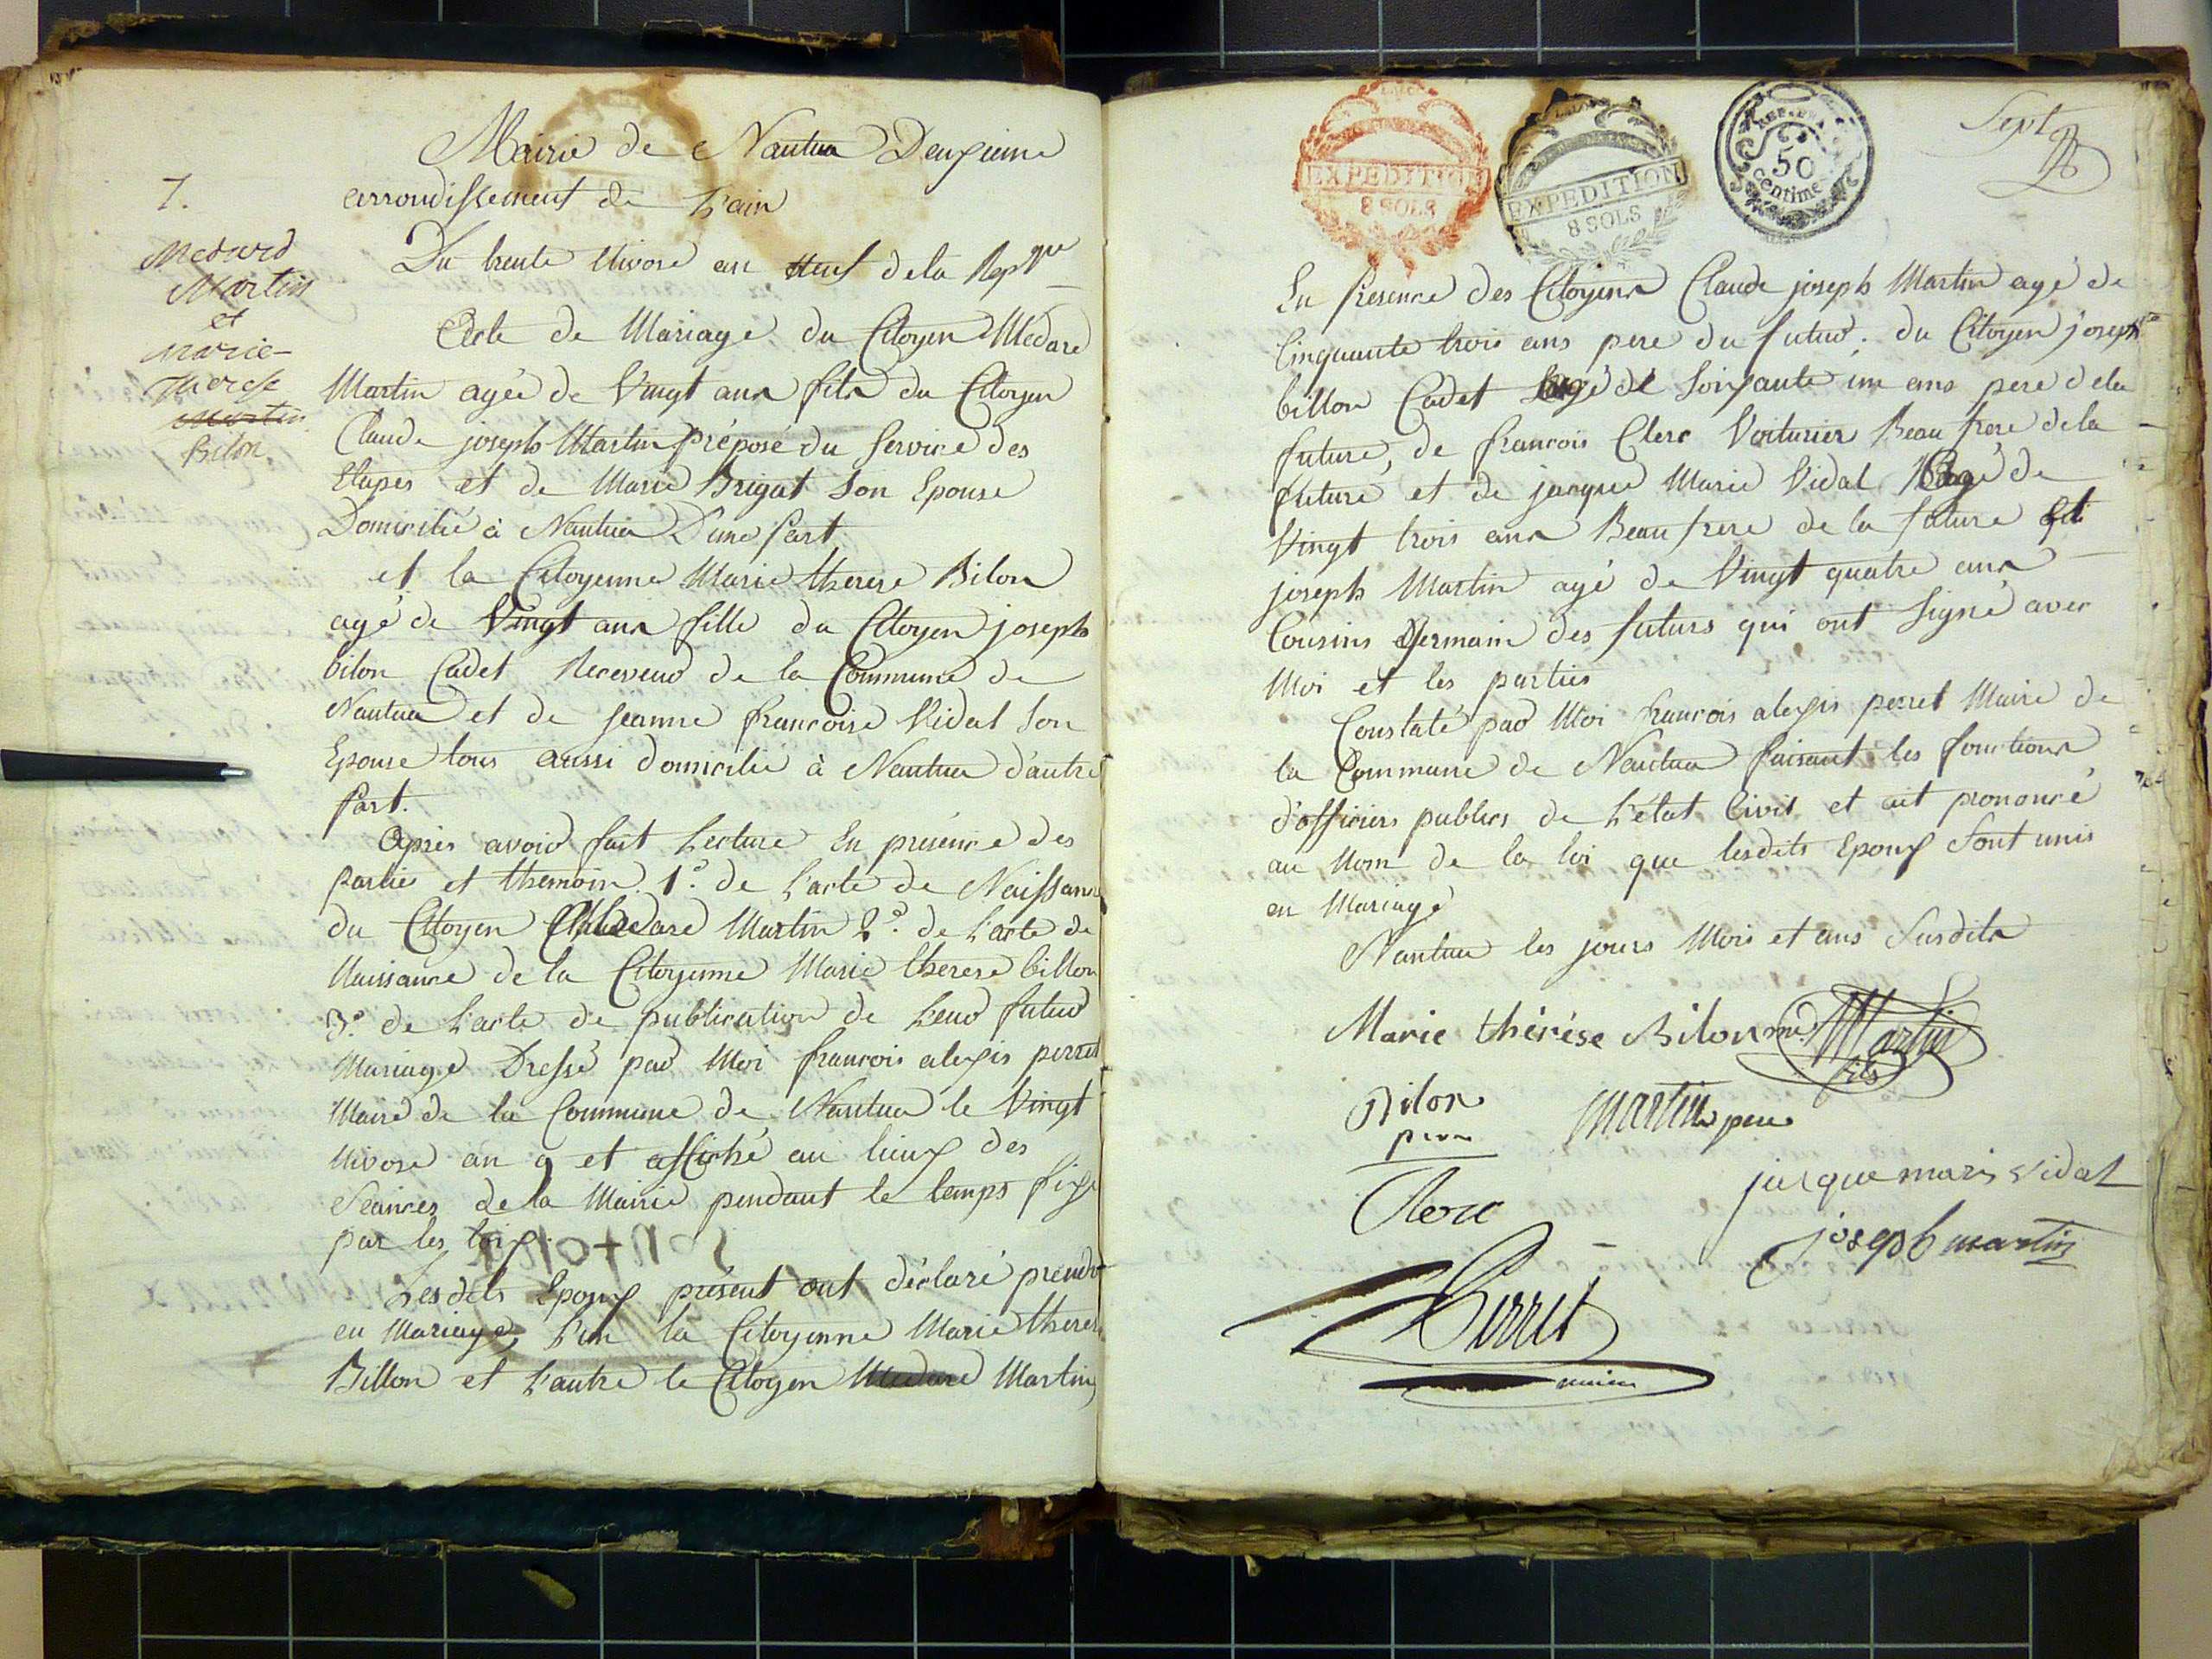 Mairie de Nantua Deuxieme
arrondissement de L'ain
7.
Medard
Martin
et
Marie
Therese
Martin
Bilon
Du trente Nivose an Neuf de la Repque
Acte de Mariage du Citoyen Médard
Martin agée de Vingt ans fils du Citoyen
Claude joseph Martin préposé du Service des
Etapes et de Marie Brigat Son Epouse
Domicilié à Nantua D'une part
et la Citoyenne Marie therese Bilon
agé de Vingt ans fille du Citoyen joseph
bilon Cadet Receveur de la Commune de
Nantua et de jeanne francoise Vidal Son
Epouse tous aussi domicilié à Nantua d'autre
part.
Après avoir fait Lecture En présence des
parties et themoin. 1o. de L'acte de Naissance
du Citoyen Medard Martin 2o. de L'acte de
Naissance de la Citoyenne Marie therese billon
3o. de L'acte de publication de Leur futur
Mariage Dressé par Moi francois alexis perret
Maire de la Commune de Nantua le Vingt
Nivose an 9 et affiché au lieux des
Seances de la Mairie pendant le temps fixé
par les loix.
Lesdits Epoux présent ont déclaré prendre
en Mariage, L'un la Citoyenne Marie therese
Billon et L'autre le Citoyen Medard Martin
EXPEDITION
8 SOLS
EXPEDITION
8 SOLS
REP. FRA.
50
centime
Sept
En presence des Citoyens Claude joseph Martin agé de
Cinquante trois ans pere du futur; du Citoyen joseph
billon Cadet agé de Soixante un ans pere de la
future, de francois Clerc Voiturier Beau frere de la
future et de jacque Marie Vidal agé de
Vingt trois ans Beau frere de la future et
joseph Martin agé de Vingt quatre ans
Cousins Germain des futurs qui ont Signé avec
Moi et les parties
Constaté par Moi francois alexis perret Maire de
la Commune de Nantua faisant les fonctions
d'officiers publics de L'état Civil et ait prononcé
au Nom de la loi que lesdits Epoux Sont unis
en Mariage
Nantua les jours Mois et ans Susdits
Marie thérése Bilon md. Martin
fils
Bilon
pere
Martin pere
Clerc
jacque marie vidal
joseph martin
Perret
maire